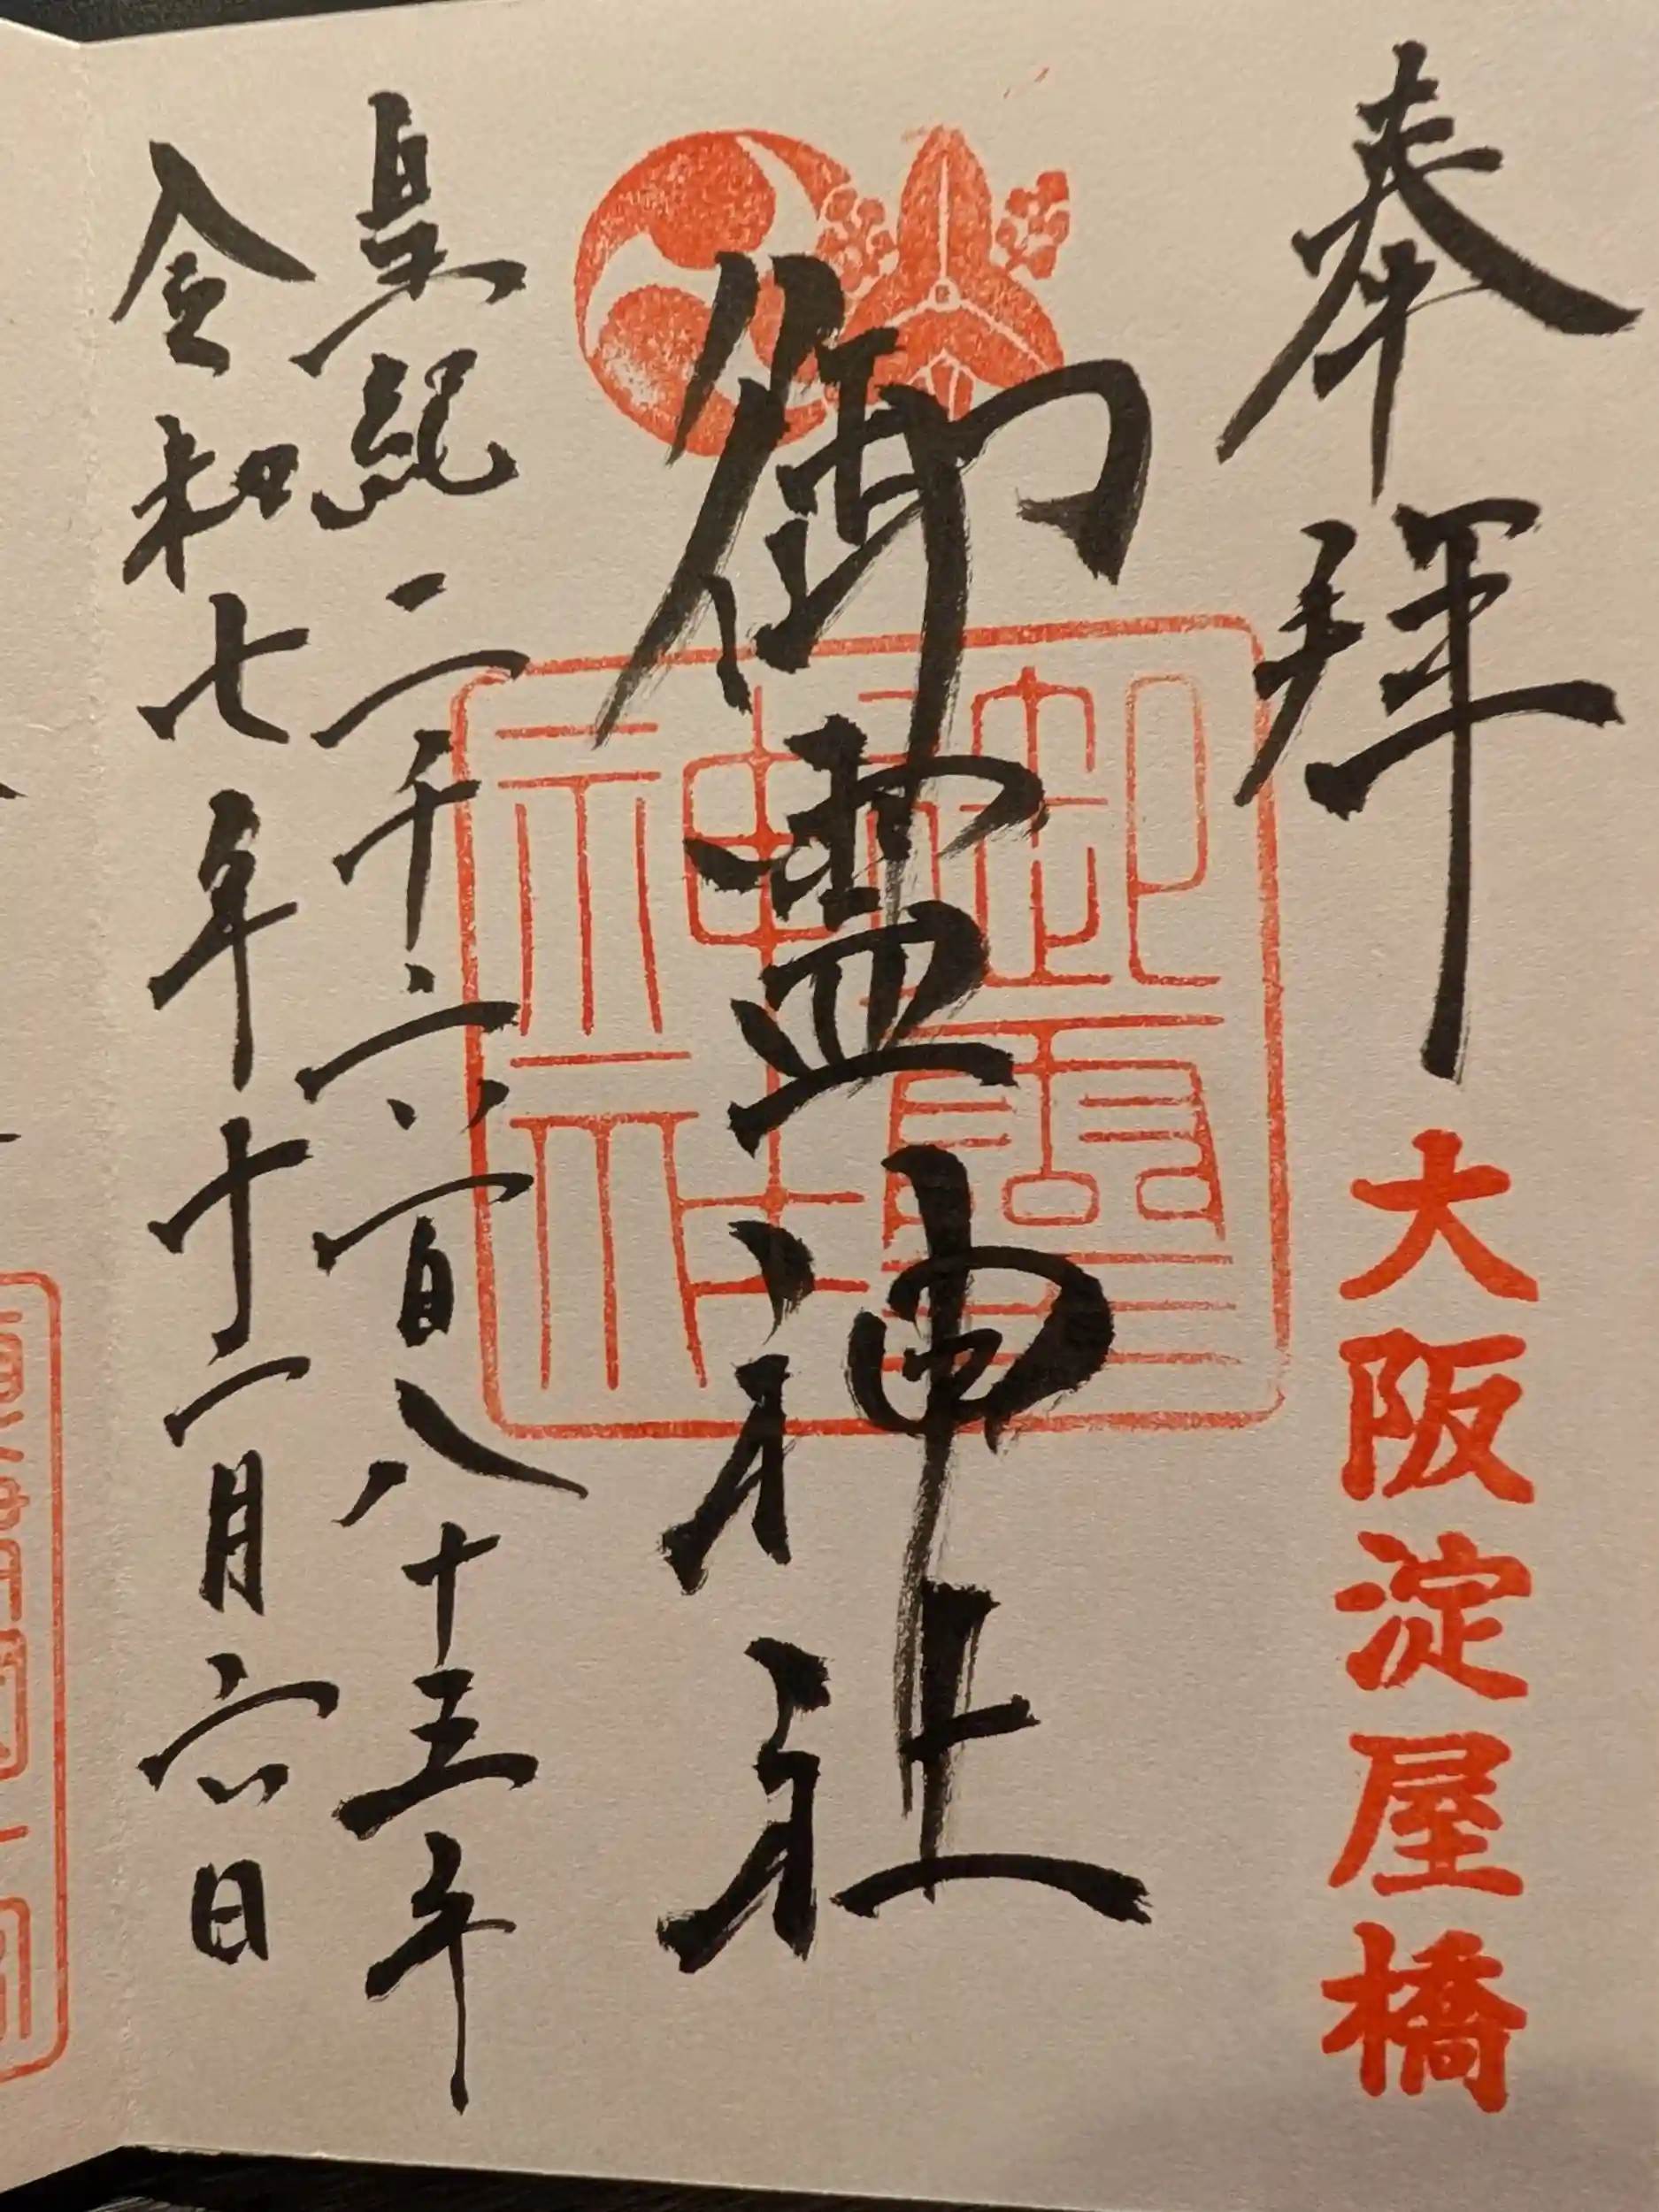 奉拝
大阪淀屋橋
御霊神社
御霊神社
皇紀二千六百八十五年
令和七年十二月六日